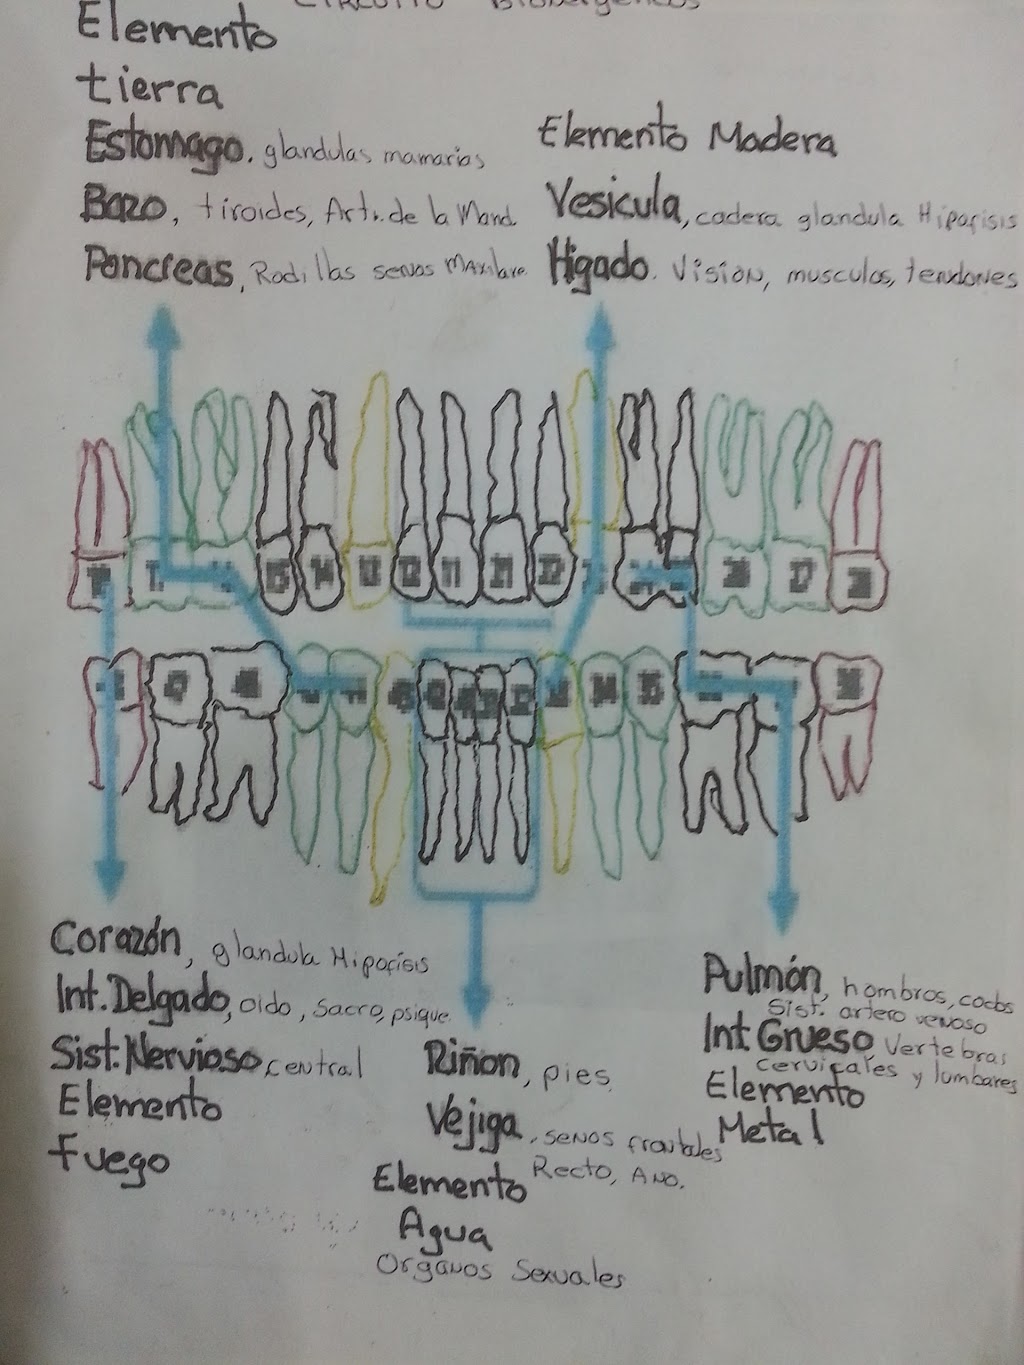 Elemento
tierra
Estomago. glandulas mamarias
Bazo, tiroides, Art. de la Mand.
Pancreas, Rodillas senos Maxilare
Elemento Madera
Vesicula, cadera glandula Hipofisis
Higado. Vision, musculos, tendones
15 14 13 12 11 21 22
26 27 28
47
34 35
38
Corazón, glandula Hipofisis
Int. Delgado, oido, sacro, psique
Sist. Nervioso central
Elemento
Fuego
Riñon, pies,
Vejiga, senos frontales
Recto, Ano.
Elemento
Agua
Organos Sexuales
Pulmón, hombros, codos
Sist. artero venoso
Int Grueso Vertebras
cervicales y lumbares
Elemento
Metal